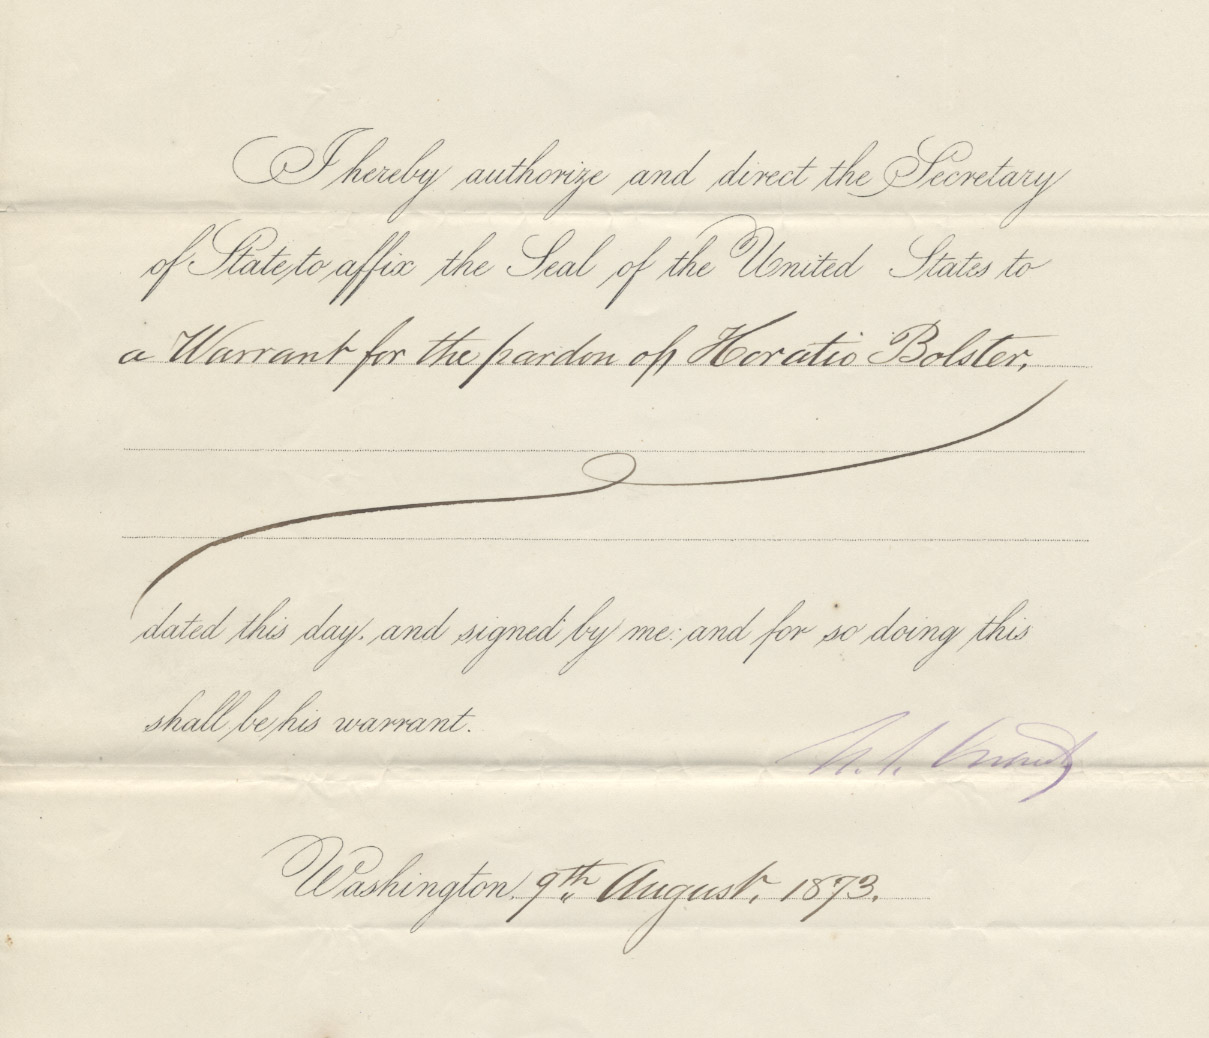 I hereby authorize and direct the Secretary
of State to affix the Seal of the United States to
a Warrant for the pardon of Horatio Bolster.
dated this day, and signed by me: and for so doing this
shall be his warrant.
U. S. Grant
Washington, 9th August, 1873.